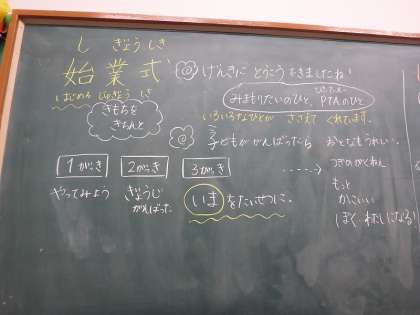 し ぎょう しき
始業式
はじめる じゅぎょう しき
きもちを
きちんと
げんきに とうこうできましたね!
みまもりたいのひと、PTAのひと
いろいろなひとが ささえて くれています。
子どもがんばったら おとなもうれしい。
1がっき
やってみよう
2がっき
ぎょうじ
がんばった
3がっき
いまをたいせつに。
つぎのがくねん
もっと
かっこいい
ぼく・わたしになる!